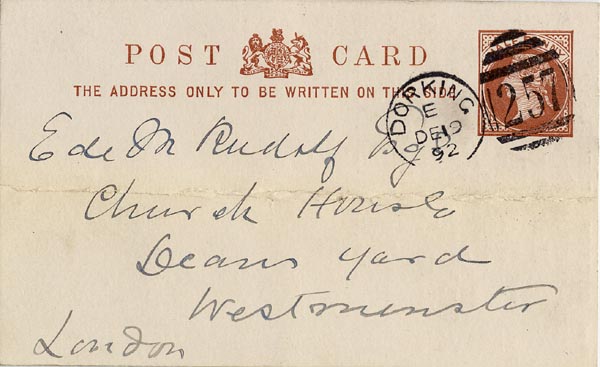 POST CARD
THE ADDRESS ONLY TO BE WRITTEN ON THE SIDE
DORKING
E
DE 19
92
257
E de M Rudolf Esq
Church House
Deans Yard
Westminster
London